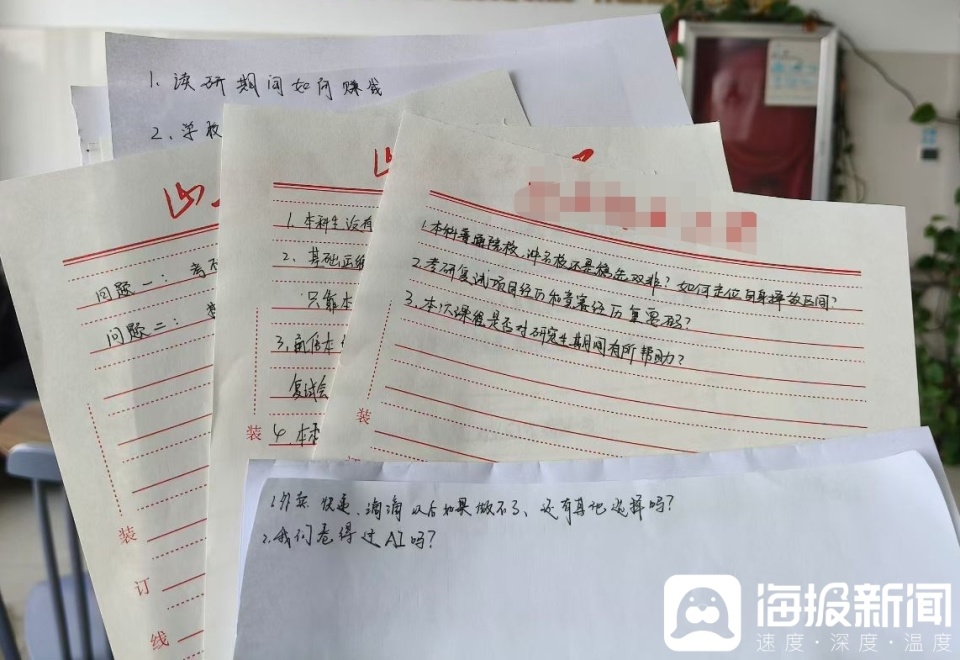 1、读研期间如何赚钱
2、学校
山
问题一：考不
问题二：
装
订
线
山
1.本科生没有
2、基础正
只靠本
3、
复试会
装
4、本
1.本科普通院校，冲名校还是稳在双非？如何定位自身择校区间？
2.考研复试项目经历和竞赛经历重要吗？
3.本次课程是否对研究生期间有所帮助？
装
1.外卖、快递、滴滴以后如果做不了、还有其他选择吗？
2.我们卷得过AI吗？
海报新闻
速度·深度·温度